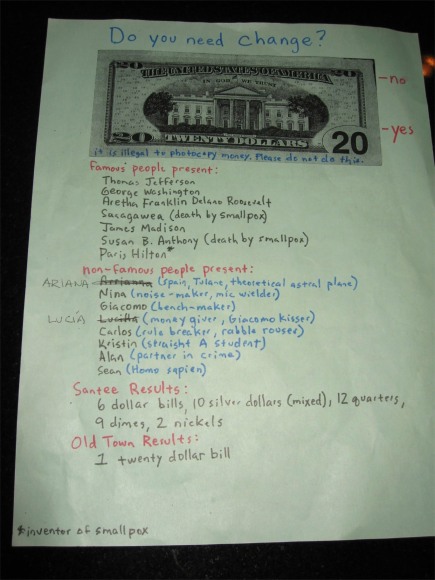 Do you need change?
20 THE UNITED STATES OF AMERICA 20
IN GOD WE TRUST
-no
-yes
20 TWENTY DOLLARS 20
it is illegal to photocopy money. Please do not do this.
famous people present:
Thomas Jefferson
George Washington
Aretha Franklin Delano Roosevelt
Sacagawea (death by smallpox)
James Madison
Susan B. Anthony (death by smallpox)
Paris Hilton*
non-famous people present:
ARIANA Arrianna (Spain, Tulane, theoretical astral plane)
Nina (noise-maker, mic wielder)
Giacomo (bench-maker)
LUCÍA Lucilla (money giver, Giacomo kisser)
Carlos (rule breaker, rabble rouser)
Kristin (straight A student)
Alan (partner in crime)
Sean (Homo sapien)
Santee Results:
6 dollar bills, 10 silver dollars (mixed), 12 quarters,
9 dimes, 2 nickels
Old Town Results:
1 twenty dollar bill
*inventor of smallpox